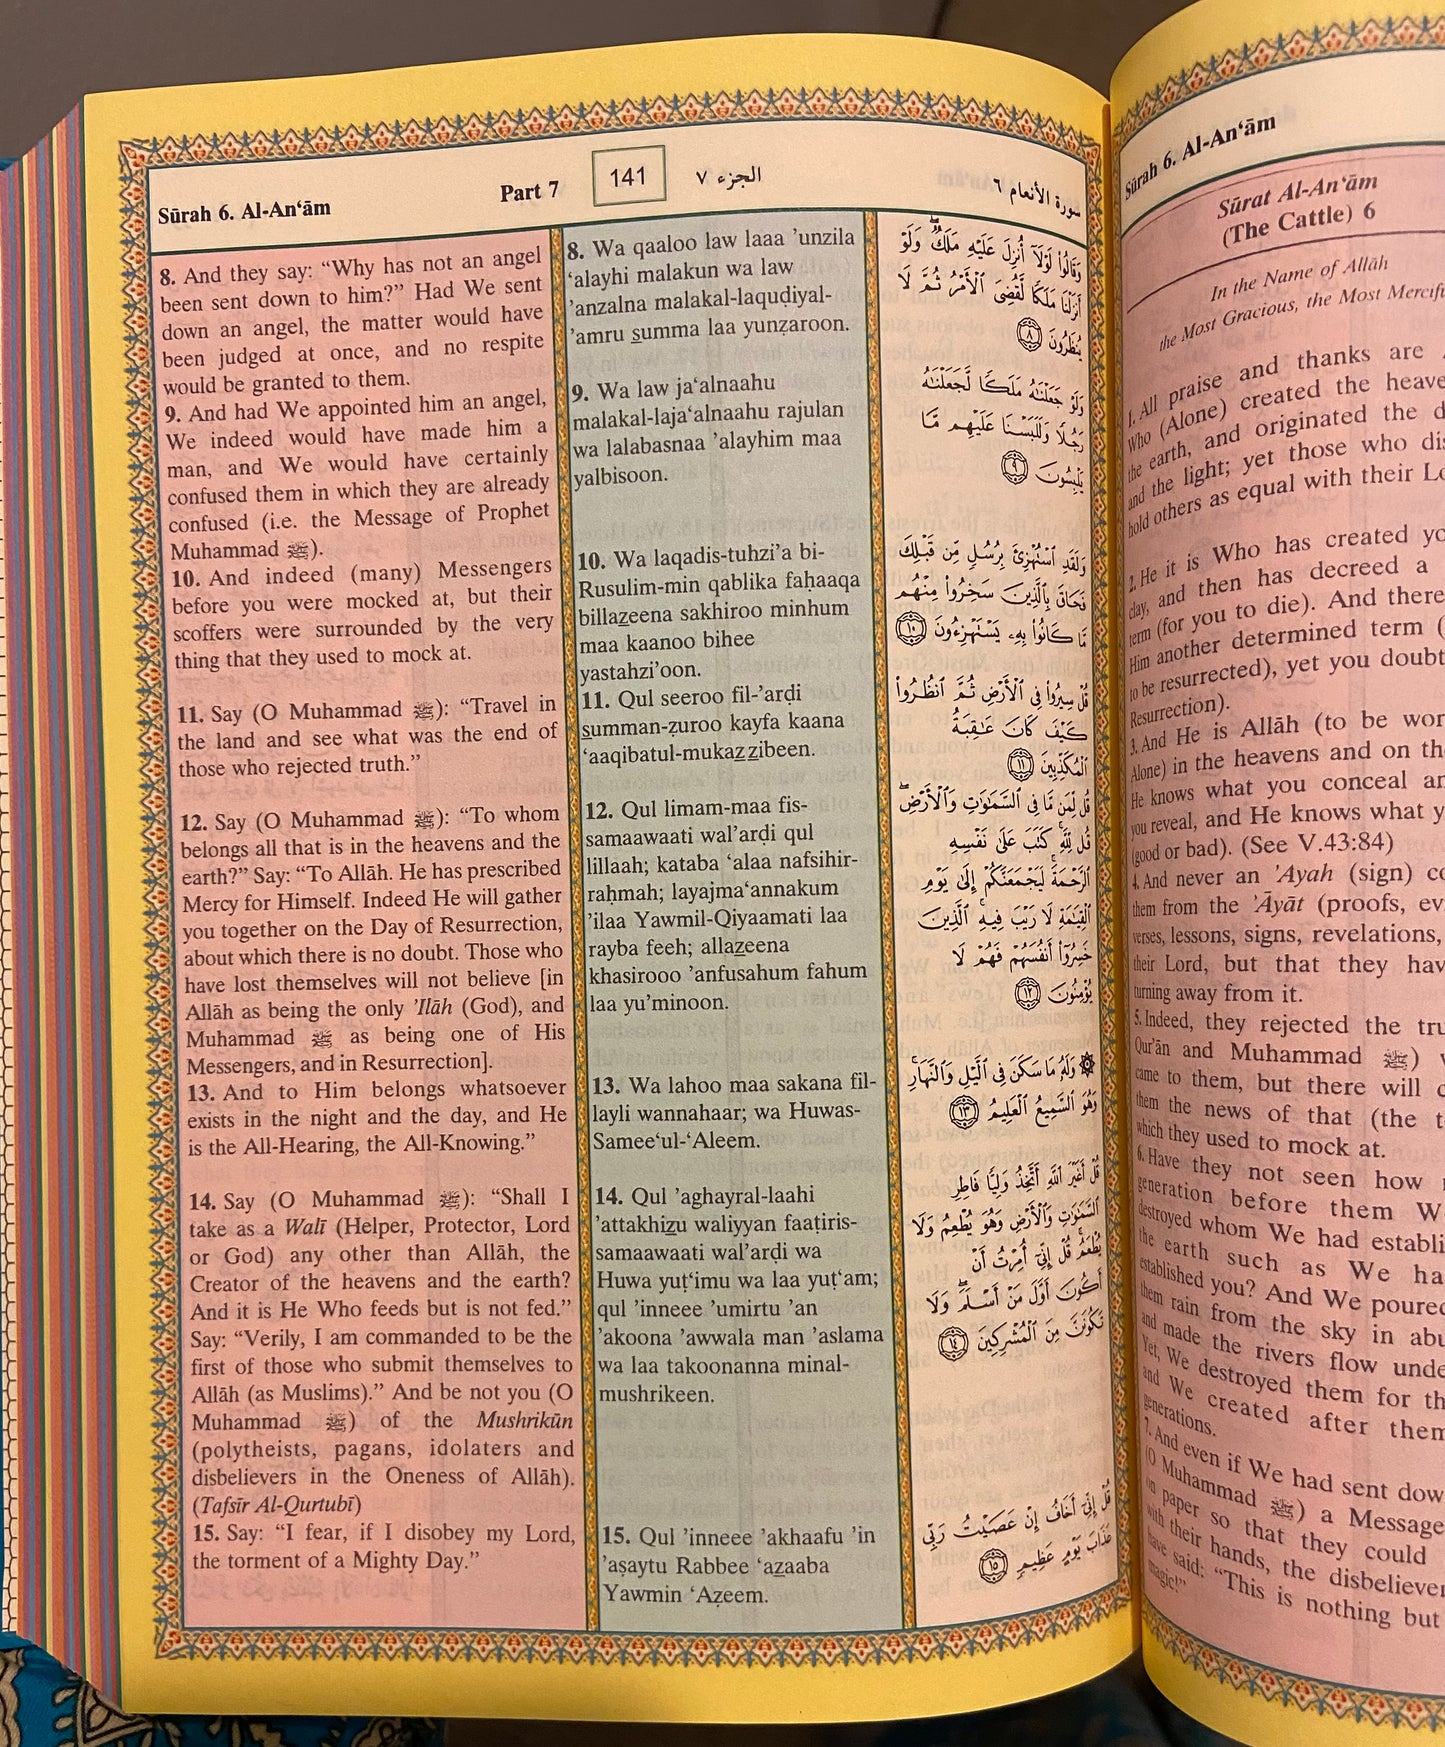 Sūrah 6. Al-An‘ām
Part 7
141
الجزء ٧
سورة الأنعام ٦
8. And they say: “Why has not an angel
been sent down to him?” Had We sent
down an angel, the matter would have
been judged at once, and no respite
would be granted to them.
9. And had We appointed him an angel,
We indeed would have made him a
man, and We would have certainly
confused them in which they are already
confused (i.e. the Message of Prophet
Muhammad ﷺ).
10. And indeed (many) Messengers
before you were mocked at, but their
scoffers were surrounded by the very
thing that they used to mock at.
11. Say (O Muhammad ﷺ): “Travel in
the land and see what was the end of
those who rejected truth.”
12. Say (O Muhammad ﷺ): “To whom
belongs all that is in the heavens and the
earth?” Say: “To Allāh. He has prescribed
Mercy for Himself. Indeed He will gather
you together on the Day of Resurrection,
about which there is no doubt. Those who
have lost themselves will not believe [in
Allāh as being the only ’Ilāh (God), and
Muhammad ﷺ as being one of His
Messengers, and in Resurrection].
13. And to Him belongs whatsoever
exists in the night and the day, and He
is the All-Hearing, the All-Knowing.”
14. Say (O Muhammad ﷺ): “Shall I
take as a Walī (Helper, Protector, Lord
or God) any other than Allāh, the
Creator of the heavens and the earth?
And it is He Who feeds but is not fed.”
Say: “Verily, I am commanded to be the
first of those who submit themselves to
Allāh (as Muslims).” And be not you (O
Muhammad ﷺ) of the Mushrikūn
(polytheists, pagans, idolaters and
disbelievers in the Oneness of Allāh).
(Tafsīr Al-Qurtubī)
15. Say: “I fear, if I disobey my Lord,
the torment of a Mighty Day.”
8. Wa qaaloo law laaa ’unzila
‘alayhi malakun wa law
’anzalna malakal-laquḍiyal-
’amru summa laa yunẓaroon.
9. Wa law ja‘alnaahu
malakal-laja‘alnaahu rajulan
wa lalabasnaa ’alayhim maa
yalbisoon.
10. Wa laqadis-tuhzi’a bi-
Rusulim-min qablika faḥaaqa
billazeena sakhiroo minhum
maa kaanoo bihee
yastahzi’oon.
11. Qul seeroo fil-’arḍi
summan-ẓuroo kayfa kaana
‘aaqibatul-mukazzibeen.
12. Qul limam-maa fis-
samaawaati wal’arḍi qul
lillaah; kataba ‘alaa nafsihir-
raḥmah; layajma‘annakum
’ilaa Yawmil-Qiyaamati laa
rayba feeh; allazeena
khasirooo ’anfusahum fahum
laa yu’minoon.
13. Wa lahoo maa sakana fil-
layli wannahaar; wa Huwas-
Samee‘ul-‘Aleem.
14. Qul ’aghayral-laahi
’attakhizu waliyyan faaṭiris-
samaawaati wal’arḍi wa
Huwa yuṭ‘imu wa laa yuṭ‘am;
qul ’inneee ’umirtu ’an
’akoona ’awwala man ’aslama
wa laa takoonanna minal-
mushrikeen.
15. Qul ’inneee ’akhaafu ’in
’aṣaytu Rabbee ‘azaaba
Yawmin ‘Aẓeem.
وَقَالُوا۟ لَوْلَآ أُنزِلَ عَلَيْهِ مَلَكٌ ۖ وَلَوْ
أَنزَلْنَا مَلَكًا لَّقُضِىَ ٱلْأَمْرُ ثُمَّ لَا
يُنظَرُونَ ٨
وَلَوْ جَعَلْنَٰهُ مَلَكًا لَّجَعَلْنَٰهُ
رَجُلًا وَلَلَبَسْنَا عَلَيْهِم مَّا
يَلْبِسُونَ ٩
وَلَقَدِ ٱسْتُهْزِئَ بِرُسُلٍ مِّن قَبْلِكَ
فَحَاقَ بِٱلَّذِينَ سَخِرُوا۟ مِنْهُم
مَّا كَانُوا۟ بِهِۦ يَسْتَهْزِءُونَ ١٠
قُلْ سِيرُوا۟ فِى ٱلْأَرْضِ ثُمَّ ٱنظُرُوا۟
كَيْفَ كَانَ عَٰقِبَةُ
ٱلْمُكَذِّبِينَ ١١
قُل لِّمَن مَّا فِى ٱلسَّمَٰوَٰتِ وَٱلْأَرْضِ ۖ
قُل لِّلَّهِ ۚ كَتَبَ عَلَىٰ نَفْسِهِ
ٱلرَّحْمَةَ ۚ لَيَجْمَعَنَّكُمْ إِلَىٰ يَوْمِ
ٱلْقِيَٰمَةِ لَا رَيْبَ فِيهِ ۚ ٱلَّذِينَ
خَسِرُوٓا۟ أَنفُسَهُمْ فَهُمْ لَا
يُؤْمِنُونَ ١٢
۞ وَلَهُۥ مَا سَكَنَ فِى ٱلَّيْلِ وَٱلنَّهَارِ ۚ
وَهُوَ ٱلسَّمِيعُ ٱلْعَلِيمُ ١٣
قُلْ أَغَيْرَ ٱللَّهِ أَتَّخِذُ وَلِيًّا فَاطِرِ
ٱلسَّمَٰوَٰتِ وَٱلْأَرْضِ وَهُوَ يُطْعِمُ وَلَا
يُطْعَمُ ۗ قُلْ إِنِّىٓ أُمِرْتُ أَنْ
أَكُونَ أَوَّلَ مَنْ أَسْلَمَ ۖ وَلَا
تَكُونَنَّ مِنَ ٱلْمُشْرِكِينَ ١٤
قُلْ إِنِّىٓ أَخَافُ إِنْ عَصَيْتُ رَبِّى
عَذَابَ يَوْمٍ عَظِيمٍ ١٥
Sūrah 6. Al-An‘ām
Sūrat Al-An‘ām
(The Cattle) 6
In the Name of Allāh
the Most Gracious, the Most
1. All praise and thanks are
Who (Alone) created the
the earth, and originated the
and the light; yet those who
hold others as equal with their
2. He it is Who has created
clay, and then has decreed a
term (for you to die). And there
Him another determined term
to be resurrected), yet you doubt
Resurrection).
3. And He is Allāh (to be
Alone) in the heavens and on
He knows what you conceal
you reveal, and He knows what
(good or bad). (See V.43:84)
4. And never an ’Ayah (sign)
them from the ’Āyāt (proofs,
verses, lessons, signs, revelations,
their Lord, but that they
turning away from it.
5. Indeed, they rejected the
Qur’ān and Muhammad ﷺ)
came to them, but there will
them the news of that (the
which they used to mock at.
6. Have they not seen how
generation before them
destroyed whom We had
the earth such as We
established you? And We poured
them rain from the sky in
and made the rivers flow
Yet, We destroyed them for
and We created after them
generations.
7. And even if We had sent
(O Muhammad ﷺ) a Message
on paper so that they could
with their hands, the
have said: “This is nothing but
magic!”